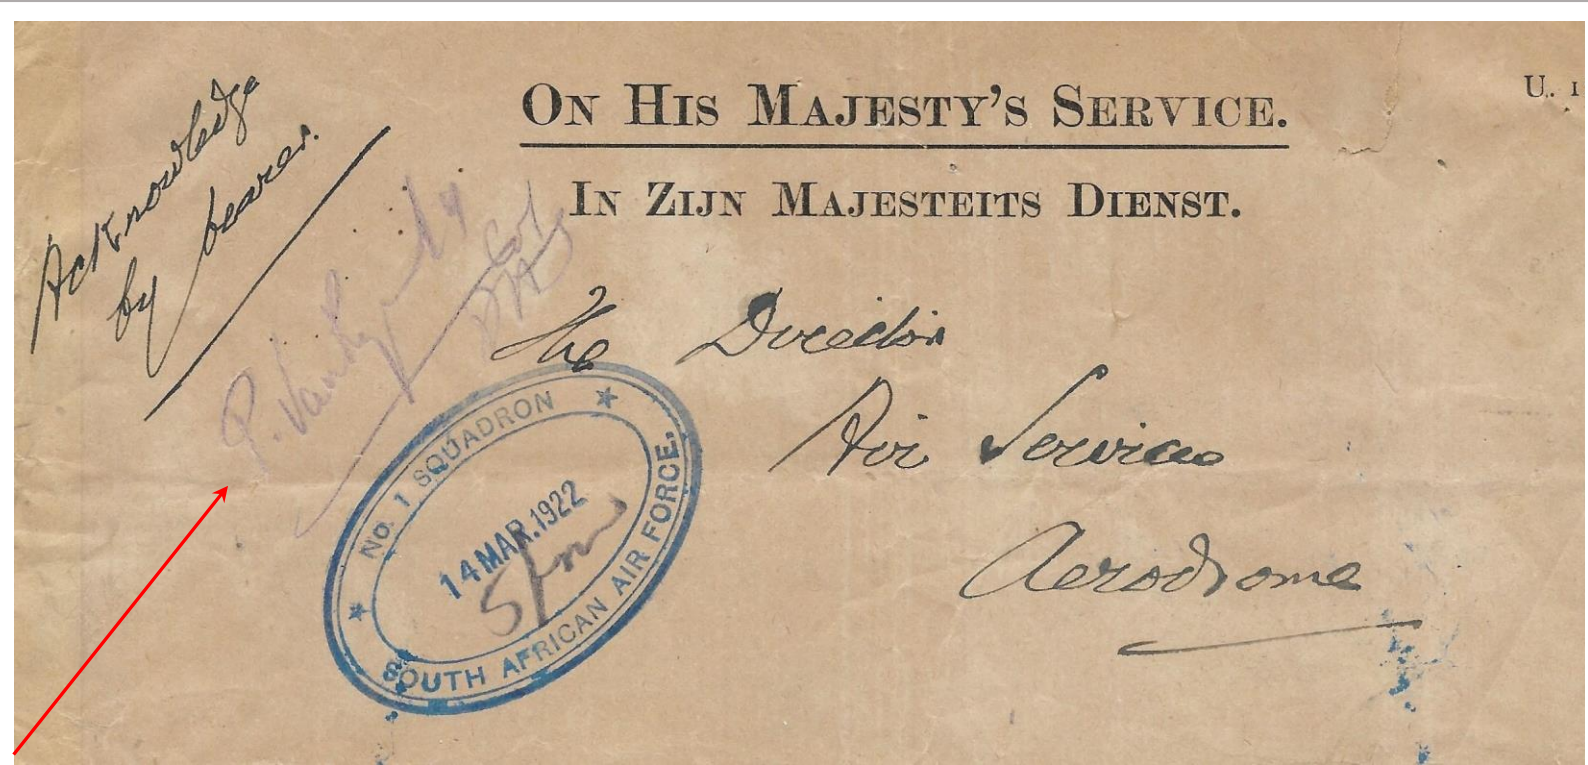 Acknowledge
by bearer.
ON HIS MAJESTY'S SERVICE.
U. 1
IN ZIJN MAJESTEITS DIENST.
P.
Col
DAS
The Director
Air Services
Aerodrome
No. 1 SQUADRON
14 MAR. 1922
SOUTH AFRICAN AIR FORCE.